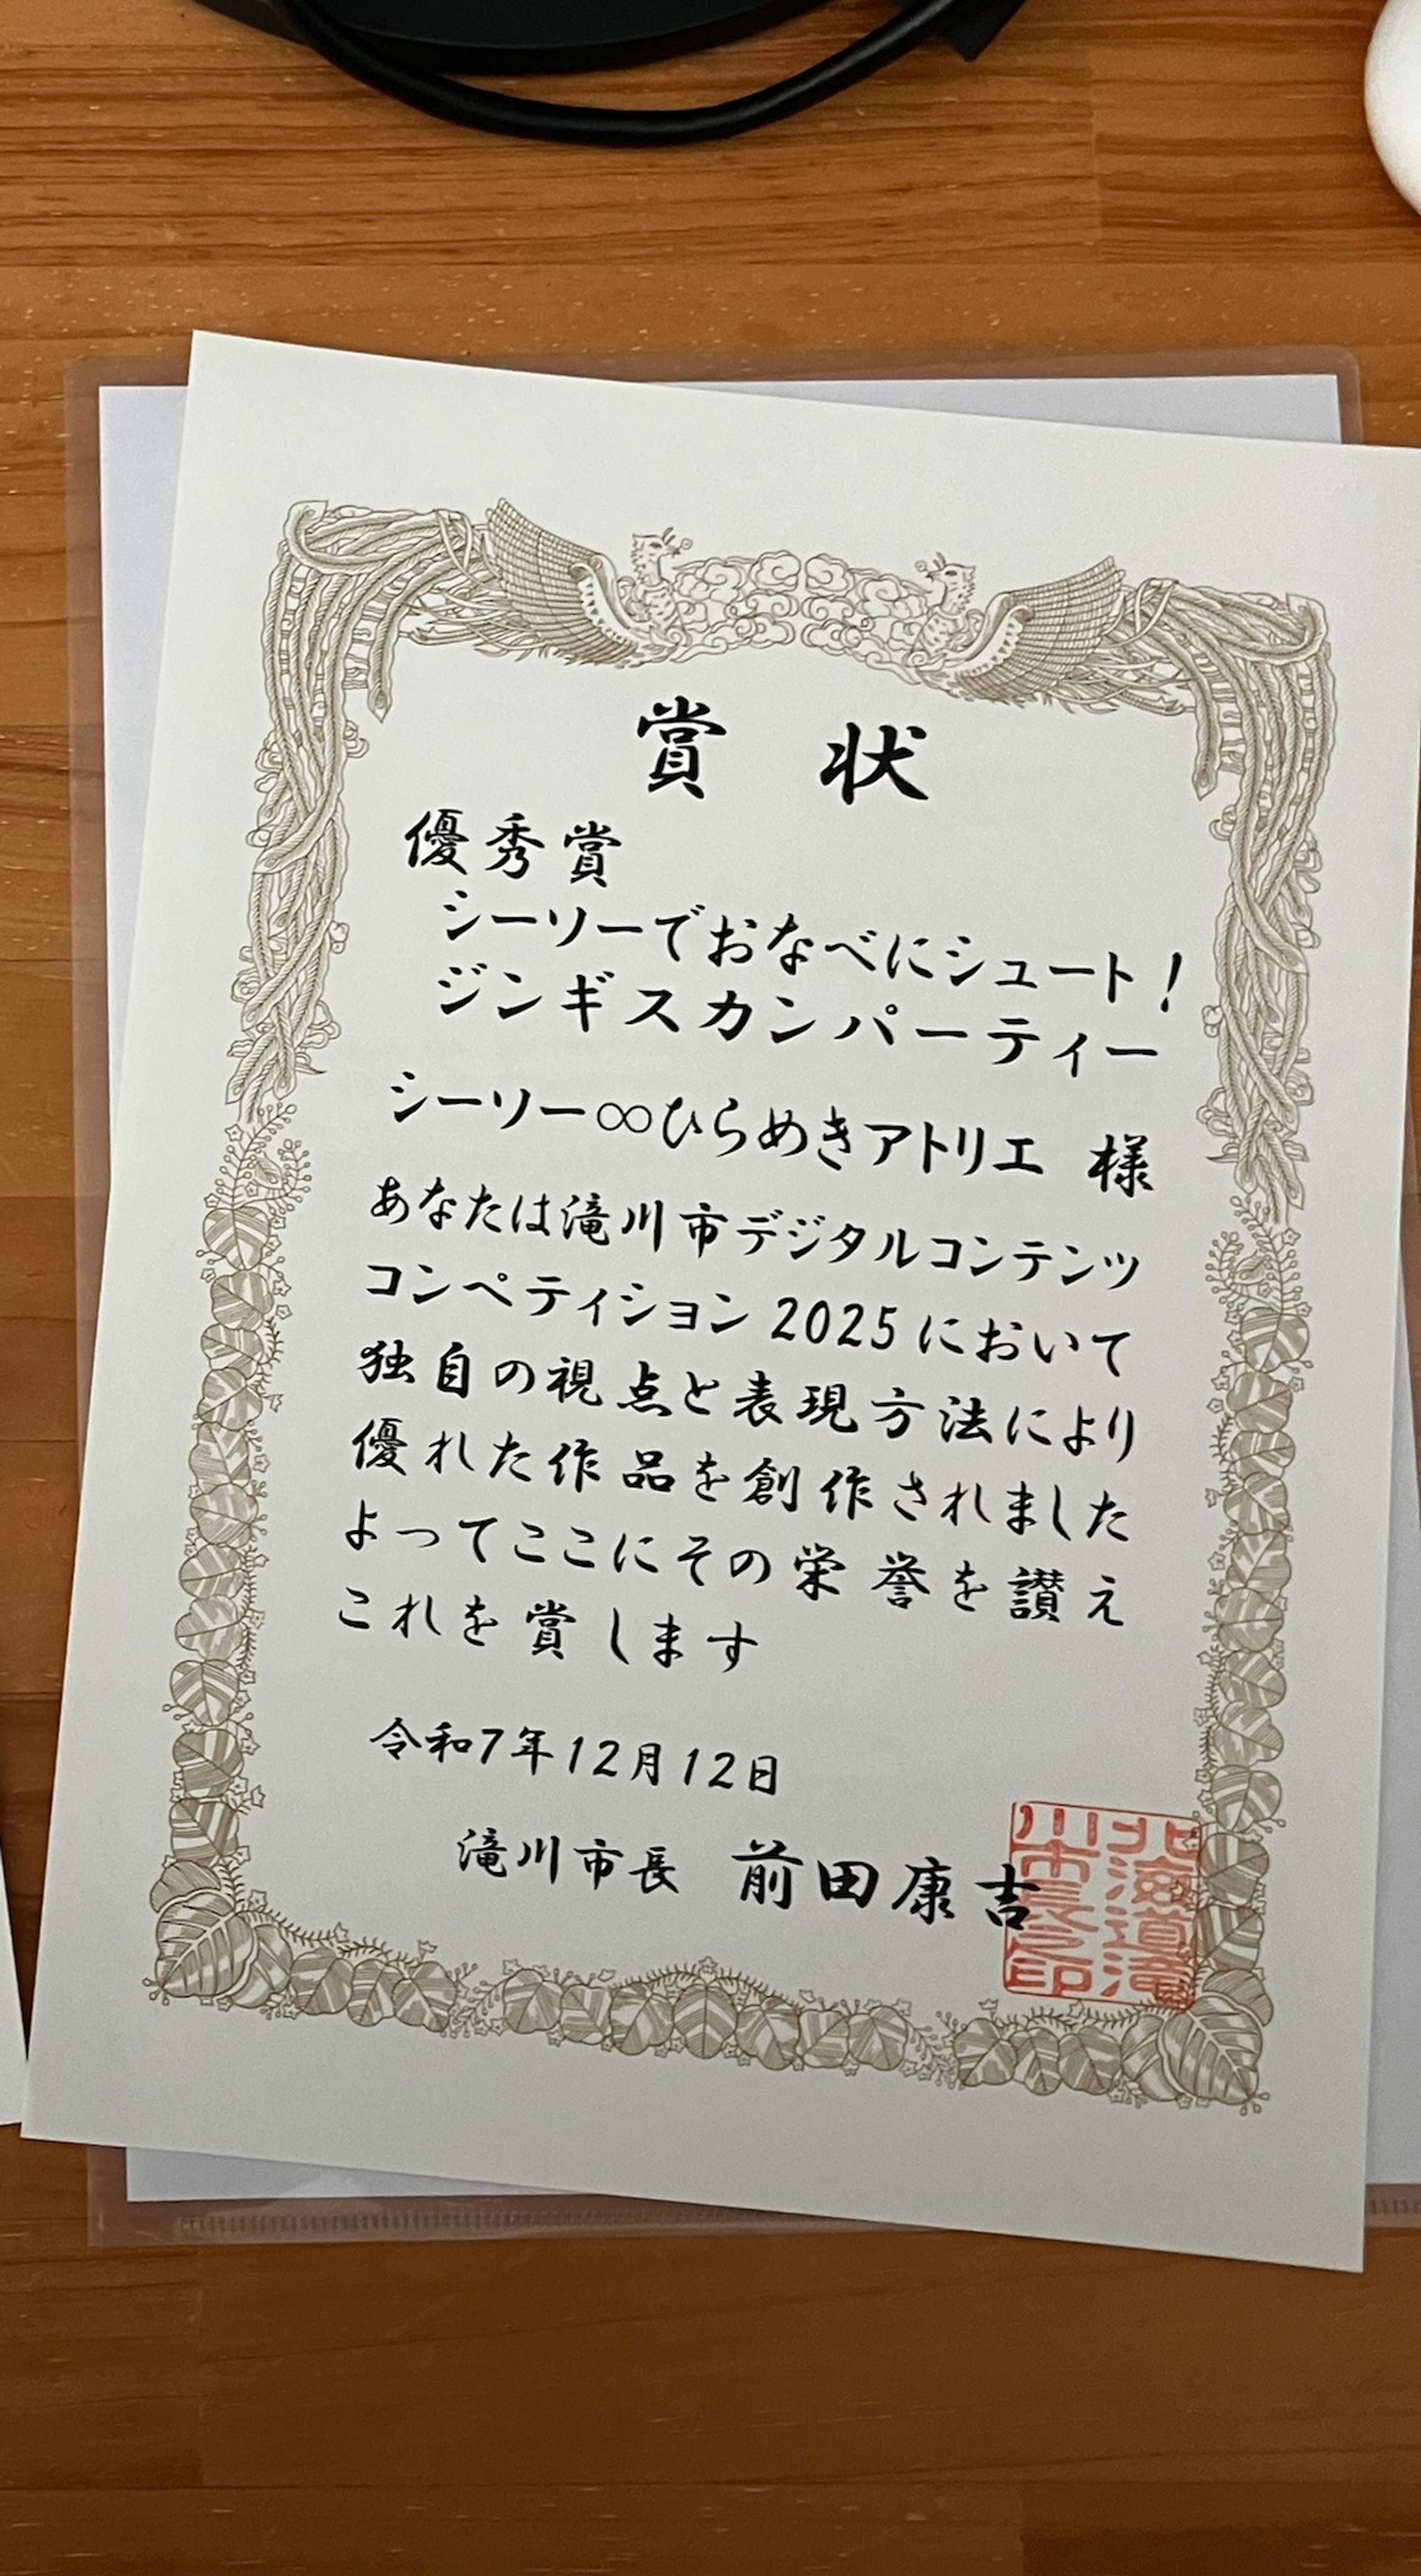 賞状
優秀賞
シーソーでおなべにシュート!
ジンギスカンパーティー
シーソー∞ひらめきアトリエ 様
あなたは滝川市デジタルコンテンツ
コンペティション2025において
独自の視点と表現方法により
優れた作品を創作されました
よってここにその栄誉を讃え
これを賞します
令和7年12月12日
滝川市長 前田康吉
北海道滝
川市長之印